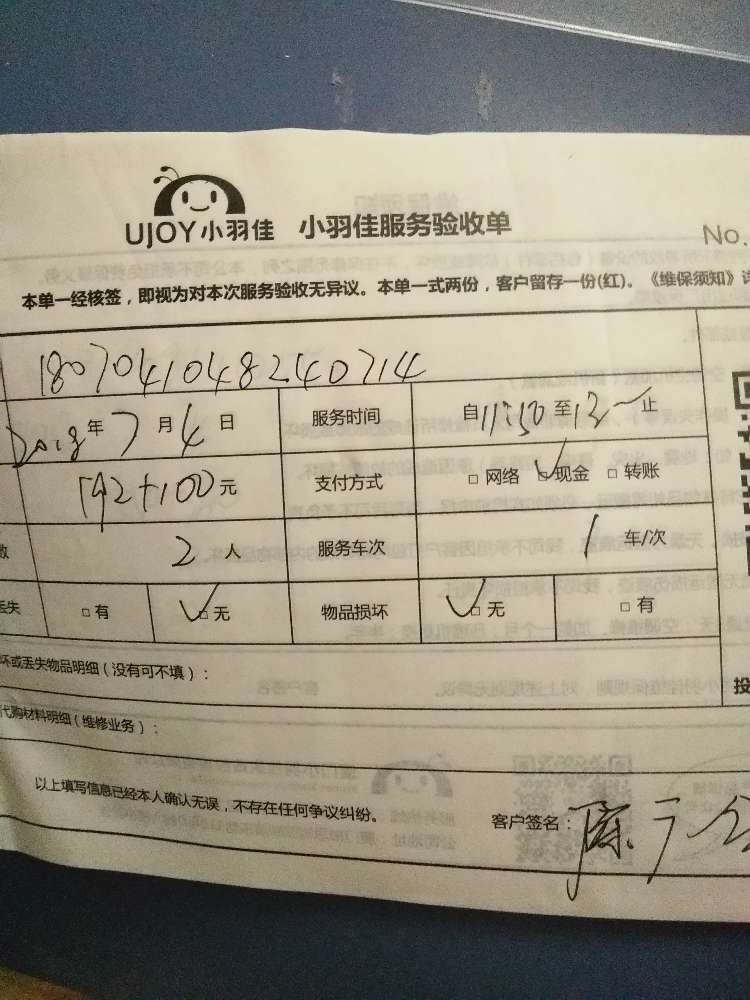 UJOY小羽佳 小羽佳服务验收单
No.
本单一经核签，即视为对本次服务验收无异议。本单一式两份，客户留存一份(红)。《维保须知》详
1807041048240714
2018年7月4日 服务时间 自11:30至12 止
592+100元 支付方式 □网络 □现金 □转账
数 2人 服务车次 1车/次
丢失 □有 □无 物品损坏 □无 □有
坏或丢失物品明细（没有可不填）：
投
代购材料明细（维修业务）：
以上填写信息已经本人确认无误，不存在任何争议纠纷。 客户签名：陈